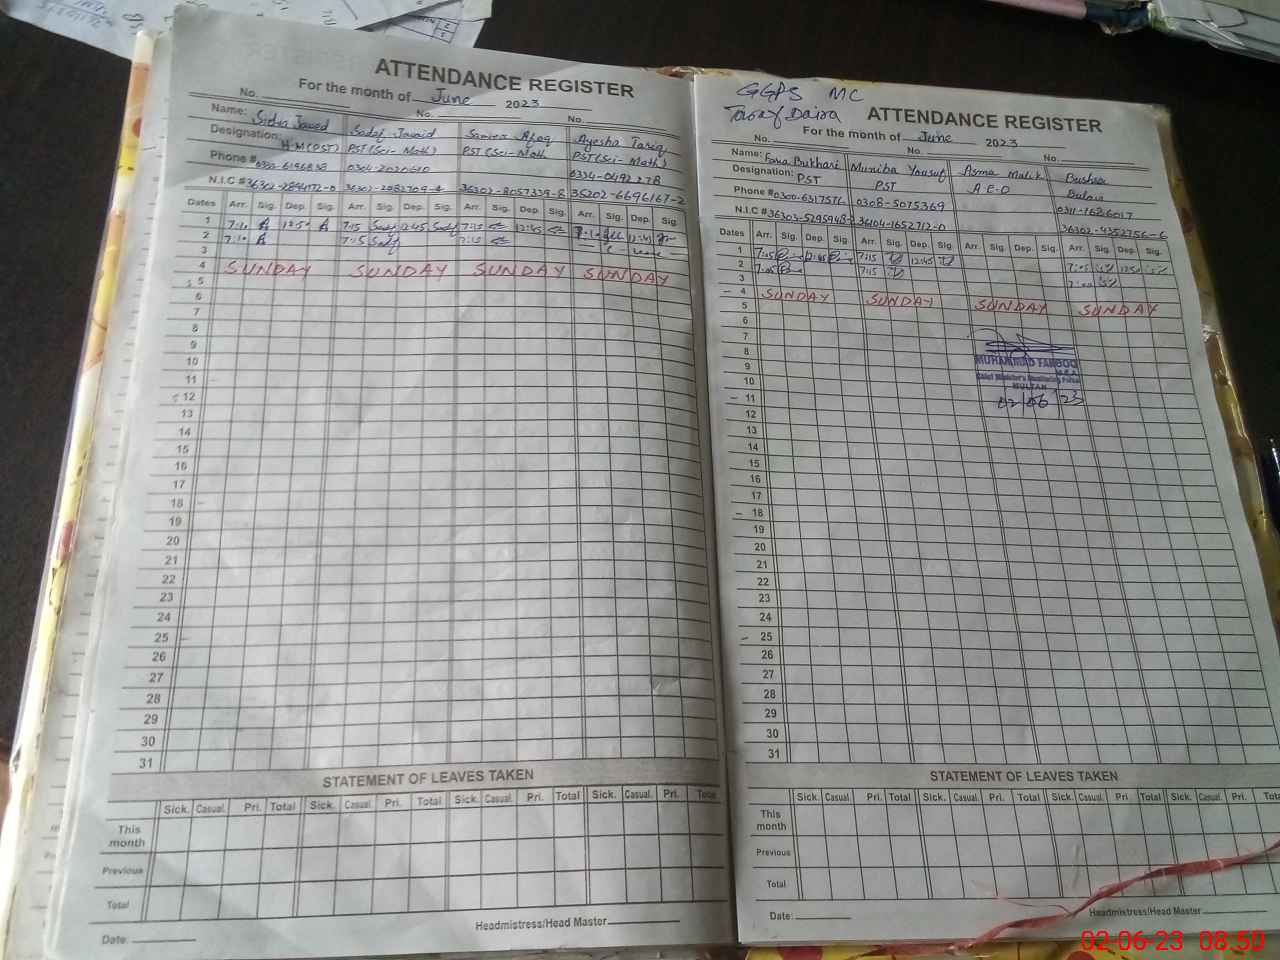 ATTENDANCE REGISTER
For the month of June 2023
No. No. No.
Name: Sidra Javed Sadaf Javaid Samra Afaq Ayesha Tariq
Designation: HM(PST) PST(Sci-Math) PST(Sci-Math) PST(Sci-Math)
Phone # 0304-2020610 0334-0492278
N.I.C # 36202-6696167-2
Dates Arr. Sig. Dep. Sig. Arr. Sig. Dep. Sig. Arr. Sig. Dep. Sig. Arr. Sig. Dep. Sig.
1 7:10 12:50 7:15 Sadf 12:45 Sadf 7:15 12:45
2 7:10 7:15 Sadf 7:15 Leave
3
4 SUNDAY SUNDAY SUNDAY SUNDAY
5
6
7
8
9
10
11
12
13
14
15
16
17
18
19
20
21
22
23
24
25
26
27
28
29
30
31
STATEMENT OF LEAVES TAKEN
Sick. Casual. Pri. Total Sick. Casual. Pri. Total Sick. Casual. Pri. Total Sick. Casual. Pri. Total
This month
Previous
Total
Headmistress/Head Master
Date:
GGPS MC
Taraf Daira
ATTENDANCE REGISTER
For the month of June 2023
No. No. No.
Name: Bukhari Muniba Yousuf Asma Malik Bushra
Designation: PST PST AEO Batain
Phone # 0300-6317576 0308-5075369 0311-1686017
N.I.C # 36303-5295948-2 36104-1652712-0 36302-4352756-6
Dates Arr. Sig. Dep. Sig. Arr. Sig. Dep. Sig. Arr. Sig. Dep. Sig. Arr. Sig. Dep. Sig.
1 7:05 12:45 7:15 12:45 7:05 1250
2 7:05 7:15 7:00
3
4 SUNDAY SUNDAY SUNDAY SUNDAY
5
6
7
8
9
10
11
12
13
14
15
16
17
18
19
20
21
22
23
24
25
26
27
28
29
30
31
MUHAMMAD FAROOQ
M.E.A
Chief Minister's Monitoring Force
MULTAN
02/06/23
STATEMENT OF LEAVES TAKEN
Sick. Casual. Pri. Total Sick. Casual. Pri. Total Sick. Casual. Pri. Total Sick. Casual. Pri. Total
This month
Previous
Total
Headmistress/Head Master
Date:
02-06-23 08:50